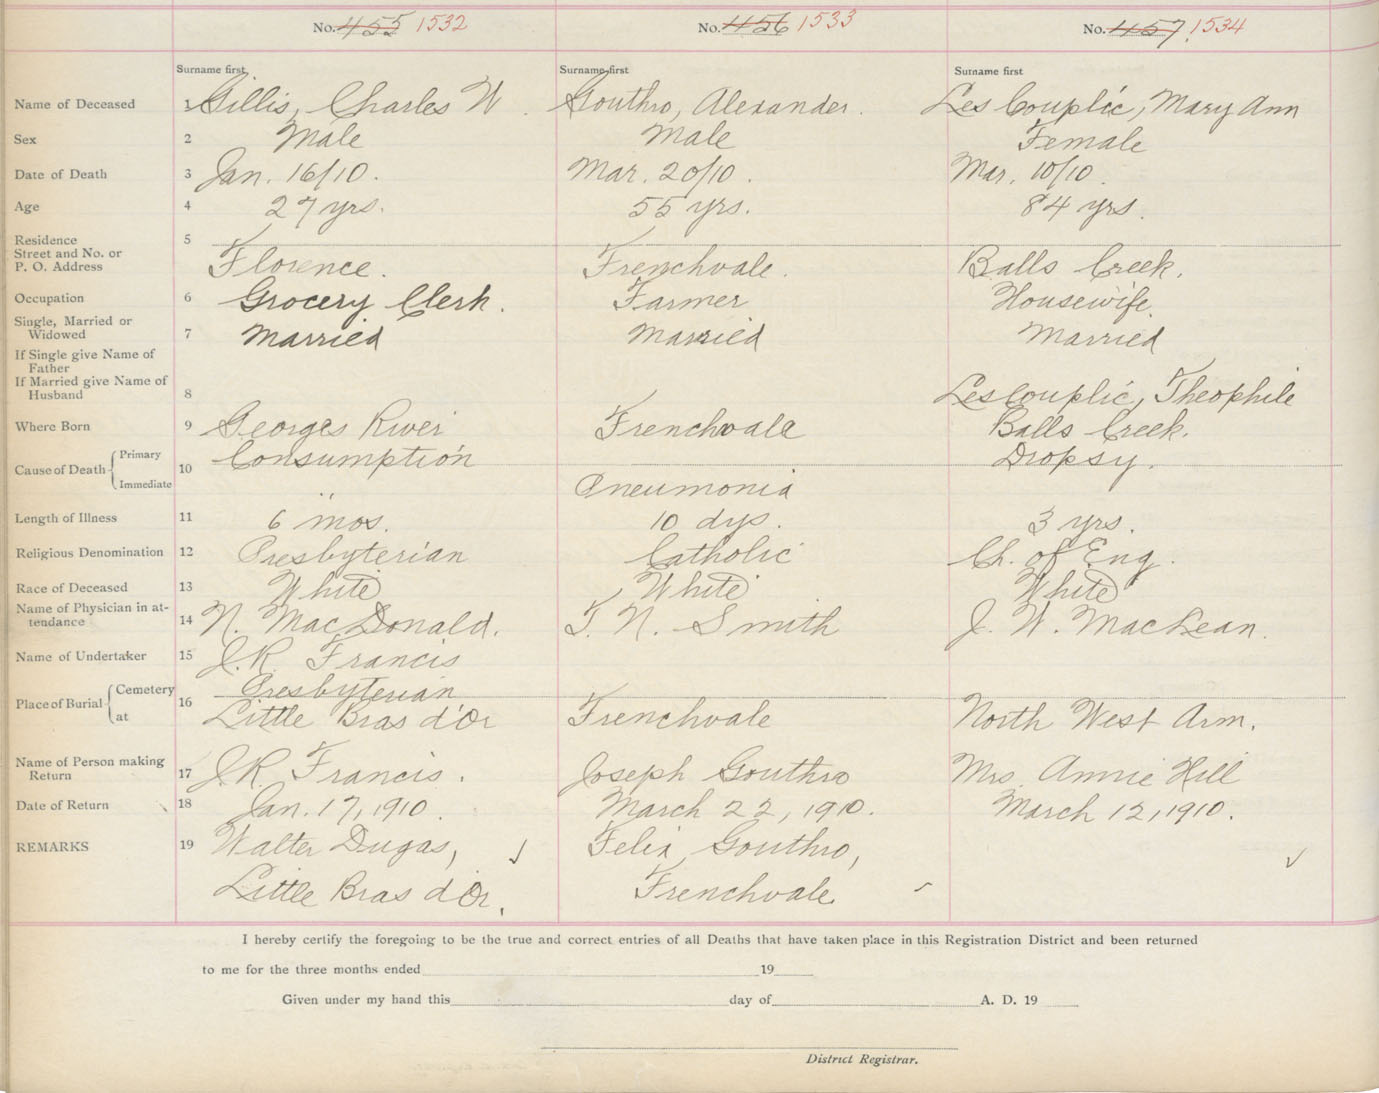 No. 455 1532 No. 456 1533 No. 457. 1534
Surname first Surname first Surname first
Name of Deceased 1 Gillis, Charles W. Gouthro, Alexander. LesCouplic, Mary Ann
Sex 2 Male Male Female
Date of Death 3 Jan. 16/10. Mar. 20/10. Mar. 10/10.
Age 4 27 yrs. 55 yrs. 84 yrs.
Residence 5
Street and No. or
P. O. Address Florence. Frenchvale. Balls Creek.
Occupation 6 Grocery Clerk. Farmer Housewife.
Single, Married or
Widowed 7 Married Married Married
If Single give Name of
Father
If Married give Name of
Husband 8 LesCouplic, Theophile
Where Born 9 Georges River Frenchvale Balls Creek.
Cause of Death Primary Consumption Dropsy.
10
Immediate " Pneumonia
Length of Illness 11 6 mos. 10 dys. 3 yrs.
Religious Denomination 12 Presbyterian Catholic Ch. of Eng.
Race of Deceased 13 White White White
Name of Physician in at-
tendance 14 N. MacDonald. T. N. Smith J. W. MacLean.
Name of Undertaker 15 J.R. Francis
Place of Burial Cemetery 16 Presbyterian
at Little Bras d'Or Frenchvale North West Arm.
Name of Person making
Return 17 J.R. Francis. Joseph Gouthro Mrs. Annie Hill
Date of Return 18 Jan. 17, 1910. March 22, 1910. March 12, 1910.
REMARKS 19 Walter Dugas, Felix Gouthro,
Little Bras d'Or, Frenchvale.
I hereby certify the foregoing to be the true and correct entries of all Deaths that have taken place in this Registration District and been returned
to me for the three months ended 19
Given under my hand this day of A. D. 19
District Registrar.